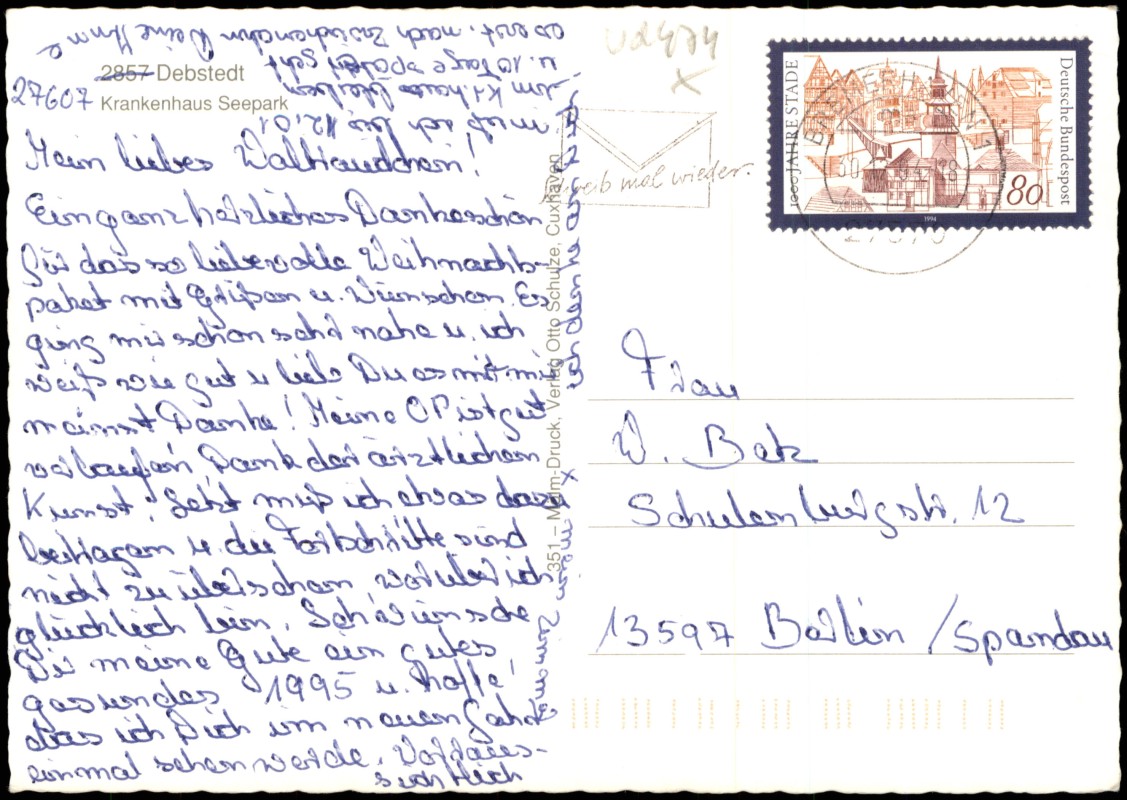 2857 Debstedt
27607
Krankenhaus Seepark
Mein liebes Waltraudchen!
Ein ganz herzliches Dankeschön
für das so liebevolle Weihnachts-
paket mit Grüßen u. Wünschen. Es
ging mir schon sehr nahe u. ich
weiß wie gut u lieb Du es mit mir
meinst Danke! Meine OP ist gut
verlaufen, Dank der ärztlichen
Kunst! Jetzt muß ich etwas dazu
beitragen u. die Fortschritte sind
nicht zu übersehen, worüber ich
glücklich bin. Ich wünsche
Dir meine Gute ein gutes
gesundes 1995 u. hoffe,
das ich Dich im neuen Jahr
einmal sehen werde. Voraus-
sichtlich
muß ich bis 12.01.
im Kr.haus bleiben
u. 10 Tage später geht
es erst. nach Zwischenahn Deine
351 – Malm-Druck, Verlag Otto Schulze, Cuxhaven
ich denke an
Vd 474
x
Schreib mal wieder.
BREMERHAVEN 1
27570
1000 JAHRE STADE
Deutsche Bundespost
80
1994
Frau
W. Betz
Schulenburgstr. 12
13597 Berlin / Spandau